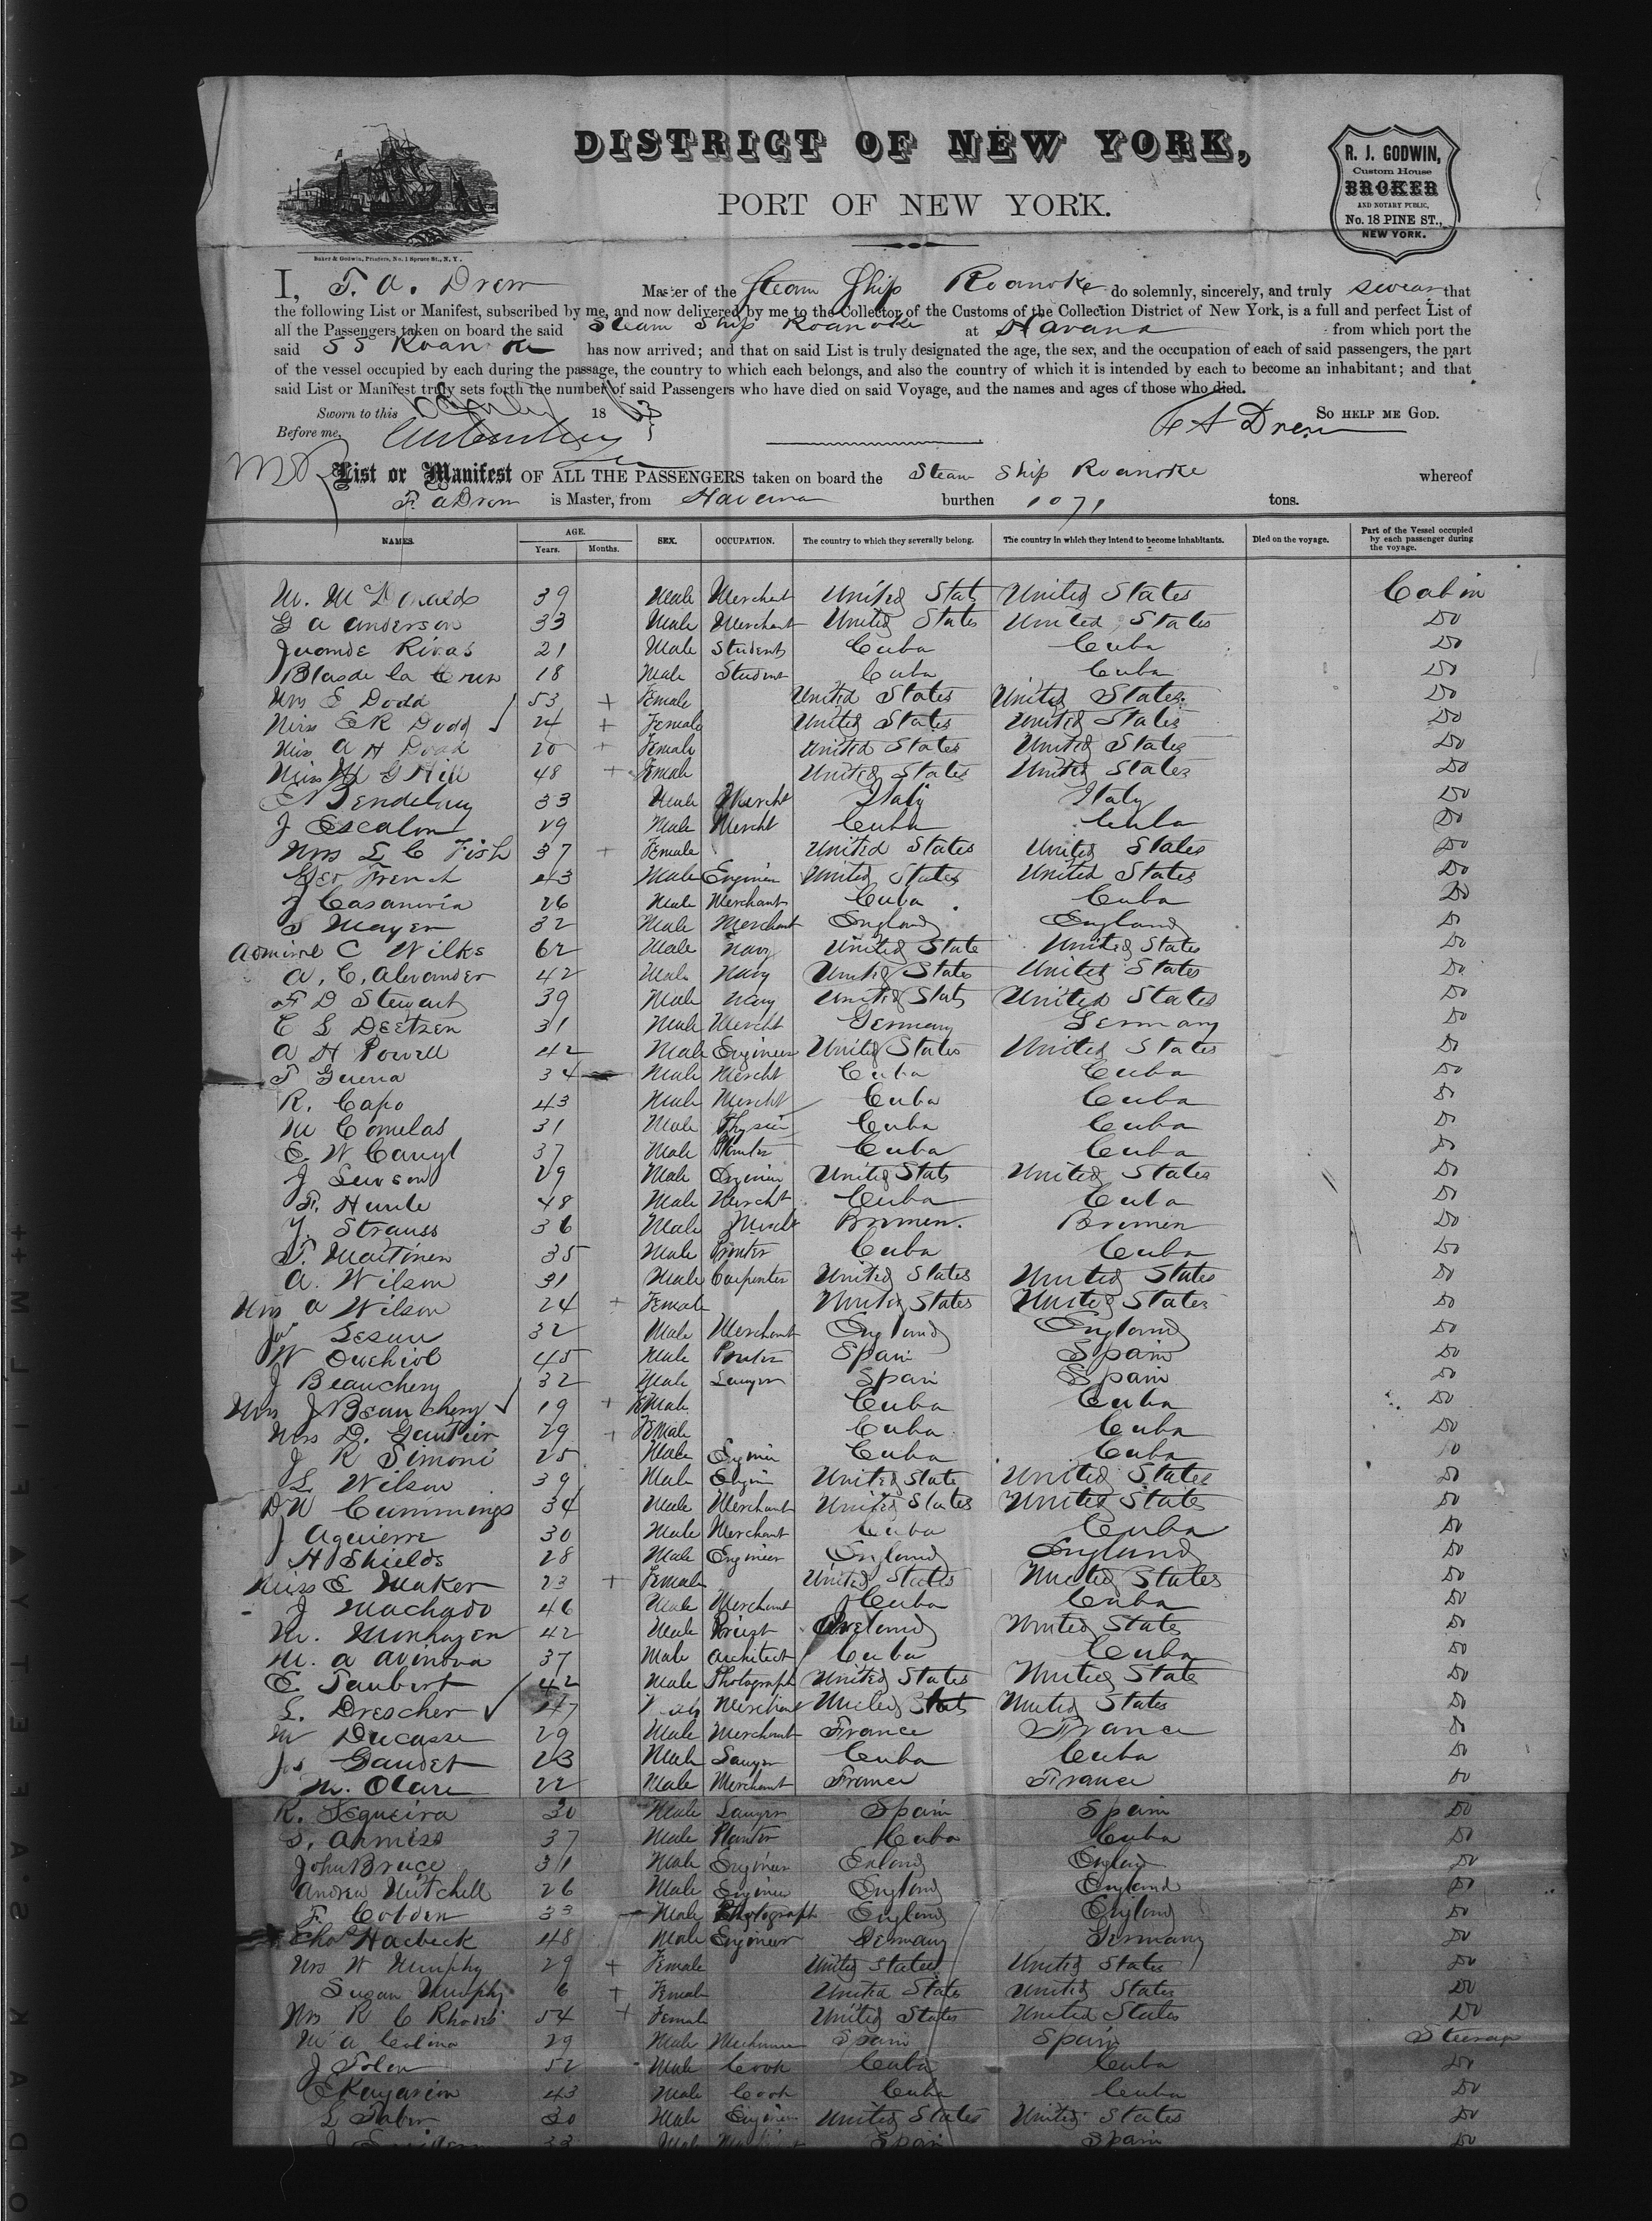 DISTRICT OF NEW YORK,
PORT OF NEW YORK.
R. J. GODWIN,
Custom House
BROKER
AND NOTARY PUBLIC,
No. 18 PINE ST.,
NEW YORK.
Baker & Godwin, Printers, No. 1 Spruce St., N. Y.
I, F. A. Drew Master of the Steam Ship Roanoke do solemnly, sincerely, and truly swear that
the following List or Manifest, subscribed by me, and now delivered by me to the Collector of the Customs of the Collection District of New York, is a full and perfect List of
all the Passengers taken on board the said Steam Ship Roanoke at Havana from which port the
said SS Roanoke has now arrived; and that on said List is truly designated the age, the sex, and the occupation of each of said passengers, the part
of the vessel occupied by each during the passage, the country to which each belongs, and also the country of which it is intended by each to become an inhabitant; and that
said List or Manifest truly sets forth the number of said Passengers who have died on said Voyage, and the names and ages of those who died.
Sworn to this 18 63 So HELP ME GOD.
Before me, F A Drew
List or Manifest OF ALL THE PASSENGERS taken on board the Steam Ship Roanoke whereof
F. A Drew is Master, from Havana burthen 1071 tons.
NAMES. AGE. Years. Months. SEX. OCCUPATION. The country to which they severally belong. The country in which they intend to become inhabitants. Died on the voyage. Part of the Vessel occupied by each passenger during the voyage.
M. McDonald 39 Male Merchant United Stat United States Cabin
G A Anderson 33 Male Merchant United States United States Do
Rivas 21 Male Student Cuba Cuba Do
Blas de la Cruz 18 Male Student Cuba Cuba Do
Mrs E Dodd 53 + Female United States United States Do
Miss E R Dodd 24 + Female United States United States Do
Miss A H Dodd 20 + Female United States United States Do
Miss M G Hill 48 + Female United States United States Do
33 Male Mercht Italy Italy Do
J Escalon 29 Male Mercht Cuba Cuba Do
Mrs L C Fish 37 + Female United States United States Do
Geo French 43 Male Engineer United States United States Do
J Casanovia 26 Male Merchant Cuba Cuba Do
S Mayer 32 Male Merchant England England Do
Admiral C Wilks 62 Male Navy United State United States Do
A. C. Alexander 42 Male Navy United States United States Do
F D Stewart 39 Male Navy United Stats United States Do
C L Deetzen 31 Male Mercht Germany Germany Do
A H Powell 42 Male Engineer United States United States Do
T Guerra 34 Male Mercht Cuba Cuba Do
R. Capo 43 Male Mercht Cuba Cuba Do
M Comelas 31 Male Cuba Cuba Do
E. W Caryl 37 Male Cuba Cuba Do
J 29 Male United Stats United States Do
F. 48 Male Mercht Cuba Cuba Do
Y. Strauss 36 Male Bremen. Bremen Do
T. Martinen 35 Male Cuba Cuba Do
A. Wilson 31 Male Carpenter United States United States Do
Mrs A Wilson 24 + Female United States United States Do
32 Male Merchant England England Do
W 45 Male Spain Spain Do
J Beauchery 32 Male Lawyer Spain Spain Do
Mrs J Beauchery 19 + Female Cuba Cuba Do
Mrs D. Gautier 29 + Female Cuba Cuba Do
J R Simoni 25 Male Cuba Cuba Do
L. Wilson 39 Male United State United States Do
D W Cummings 34 Male Merchant United States United States Do
J Aguierre 30 Male Merchant Cuba Cuba Do
H Shields 28 Male Engineer England England Do
Miss E Maker 23 + Female United States United States Do
J Machado 46 Male Merchant Cuba Cuba Do
M. 42 Male Priest Ireland United States Do
M. A 37 Male Architect Cuba Cuba Do
E. Taubert 42 Male Photograph United States United State Do
L. Drescher 47 Merchant United Stats United States Do
M Ducasse 29 Male Merchant France France Do
Jos Gaudet 23 Male Lawyer Cuba Cuba Do
M. Olare 22 Male Merchant France France Do
R. Sequeira 30 Male Lawyer Spain Spain Do
37 Male Planter Cuba Cuba Do
John Bruce 31 Male Engineer England England Do
Andrew Mitchell 26 Male Engineer England England Do
F. Cobden 33 Male Photograph England England Do
Haebeck 48 Male Engineer Germany Germany Do
Mrs W Murphy 29 + Female United States United States Do
Susan Murphy 6 + Female United States United States Do
Mrs R C Rhodes 54 + Female United States United States Do
M A Colina 29 Male Spain Spain Steerage
J 52 Male Cook Cuba Cuba Do
43 Male Cook Cuba Cuba Do
L Taber 30 Male Engineer United States United States Do
J 33 Male Spain Spain Do